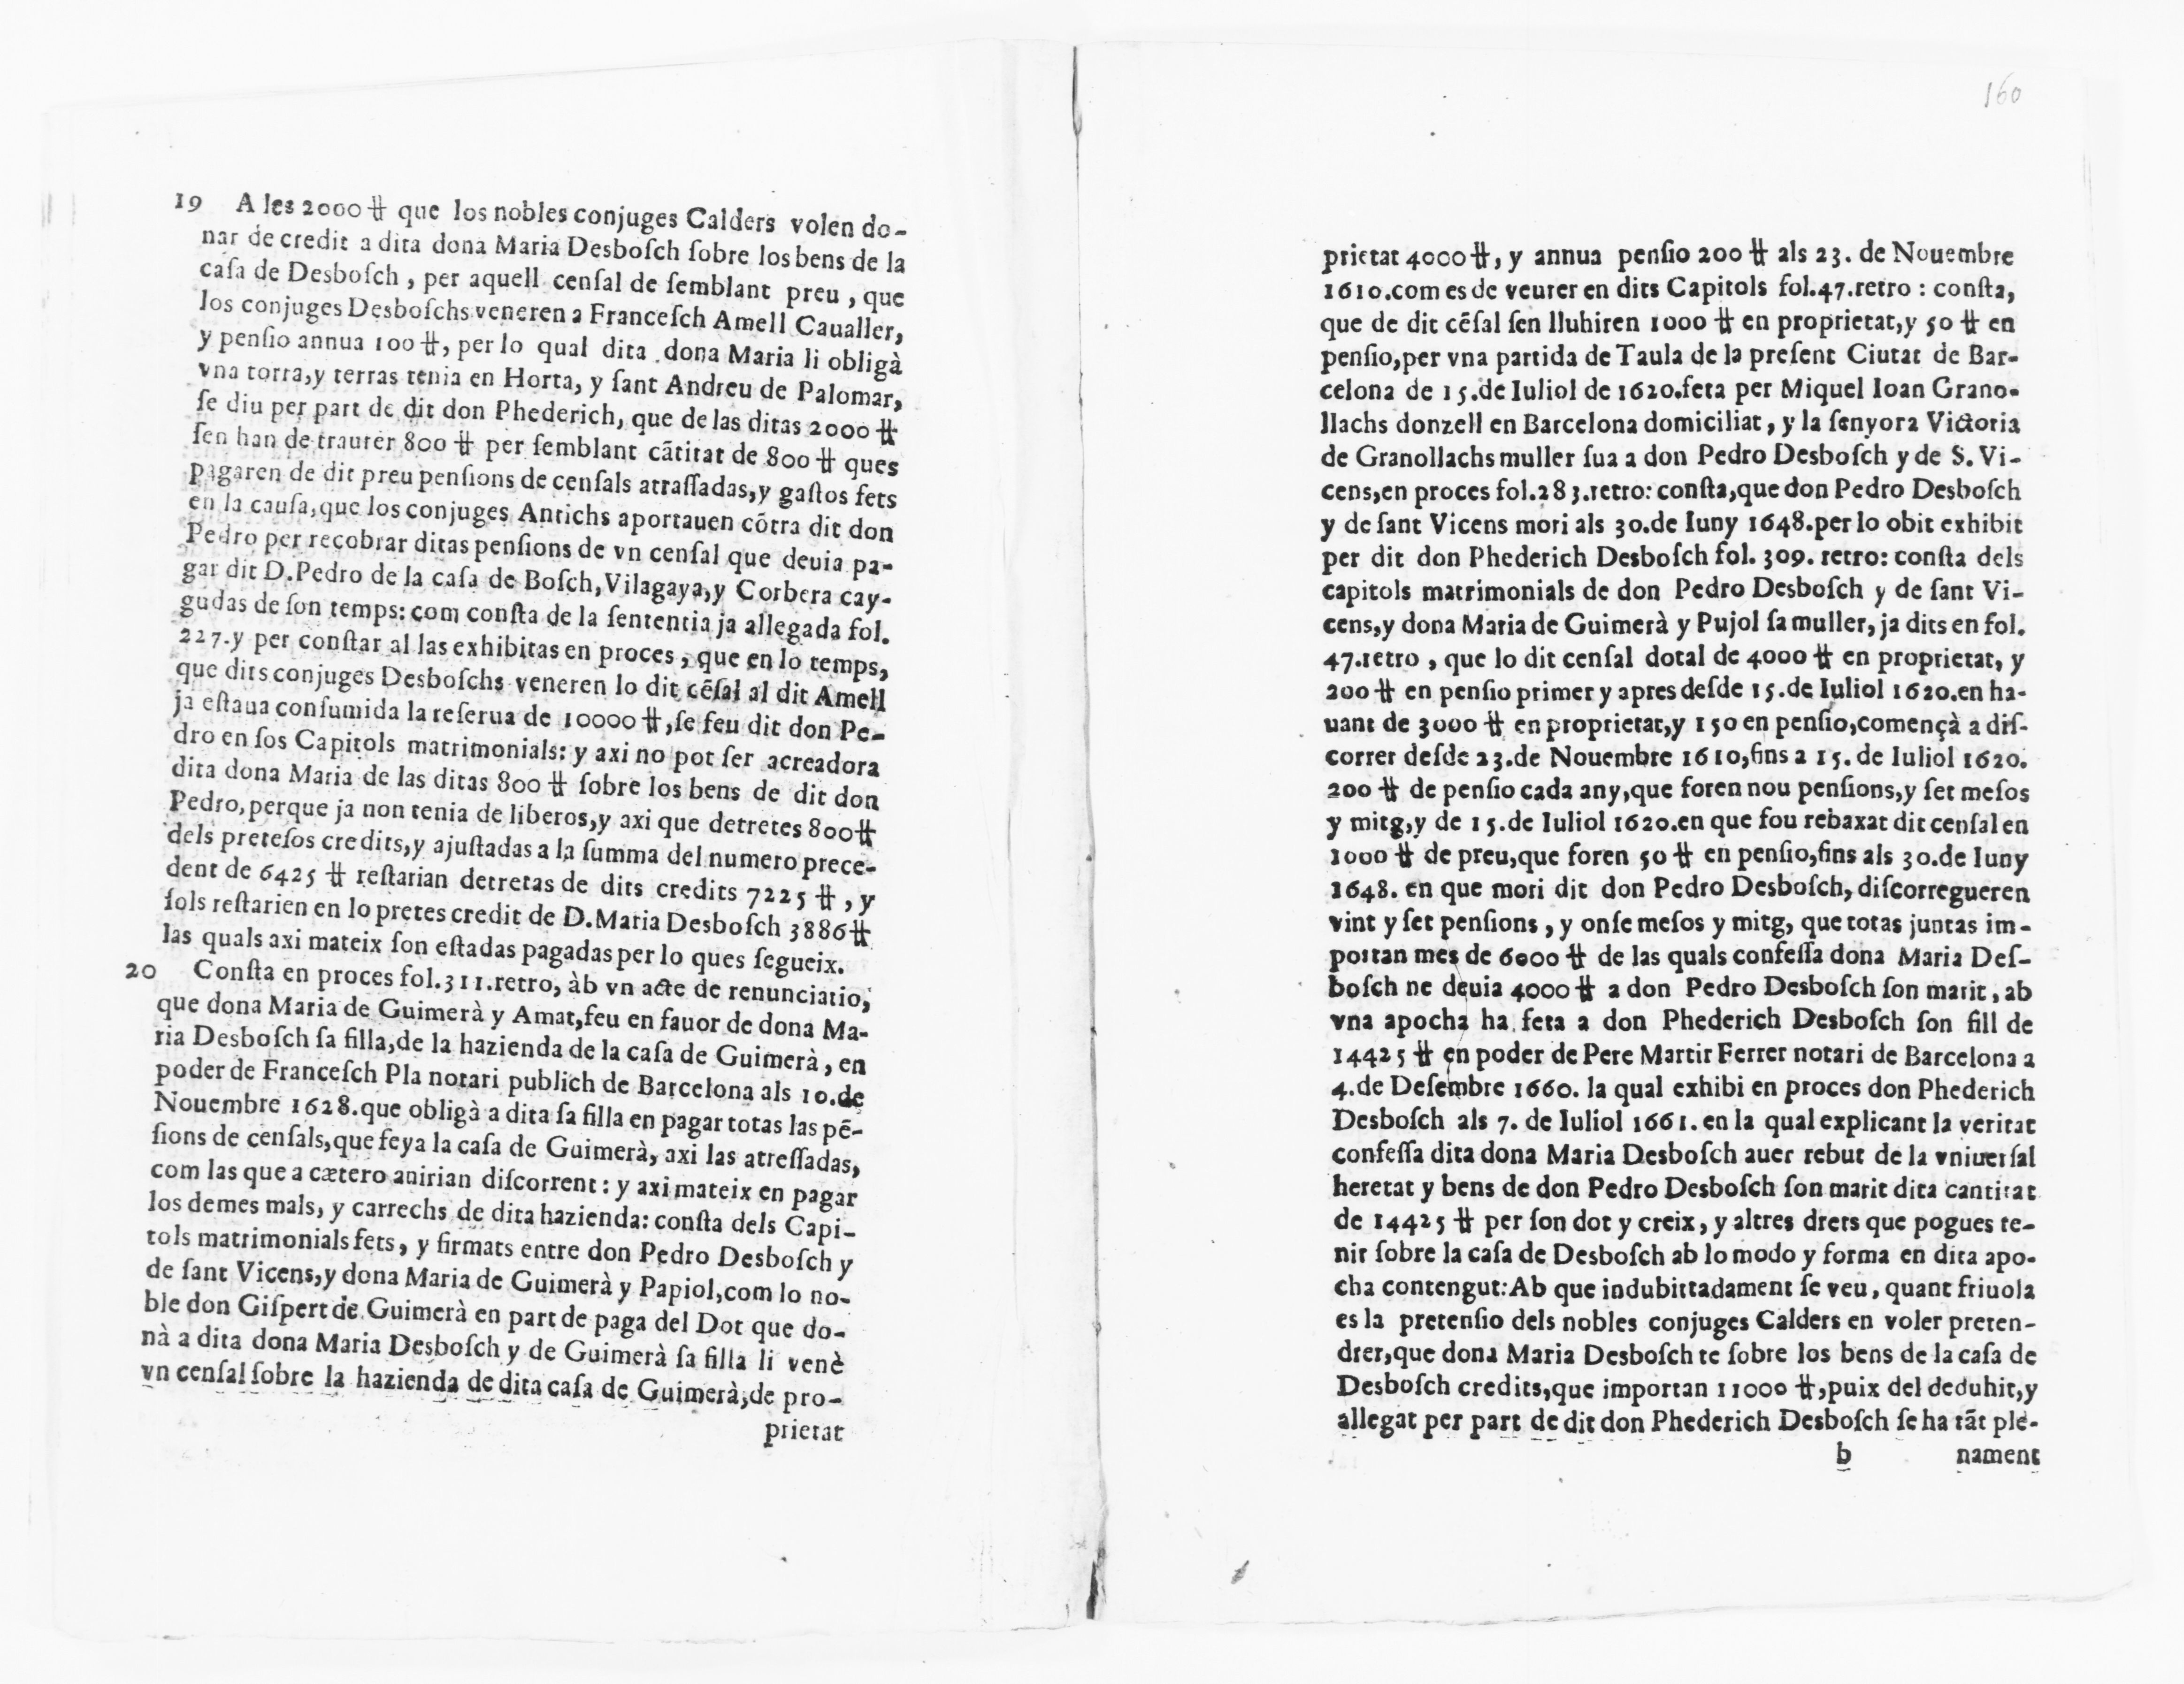 19 A les 2000 ⁜ que los nobles conjuges Calders volen do-
nar de credit a dita dona Maria Desboſch ſobre los bens de la
caſa de Desboſch, per aquell cenſal de ſemblant preu, que
los conjuges Desboſchs veneren a Franceſch Amell Caualler,
y penſio annua 100 ⁜, per lo qual dita dona Maria li obligà
vna torra, y terras tenia en Horta, y ſant Andreu de Palomar,
ſe diu per part de dit don Phederich, que de las ditas 2000 ⁜
ſen han de traurer 800 ⁜ per ſemblant cãtitat de 800 ⁜ ques
pagaren de dit preu penſions de cenſals atraſſadas, y gaſtos fets
en la cauſa, que los conjuges Antichs aportauen cõtra dit don
Pedro per recobrar ditas penſions de vn cenſal que deuia pa-
gar dit D. Pedro de la caſa de Boſch, Vilagaya, y Corbera cay-
gudas de ſon temps: com conſta de la ſententia ja allegada fol.
227. y per conſtar al las exhibitas en proces, que en lo temps,
que dits conjuges Desboſchs veneren lo dit cẽſal al dit Amell
ja eſtaua conſumida la reſerua de 10000 ⁜, ſe feu dit don Pe-
dro en ſos Capitols matrimonials: y axi no pot ſer acreadora
dita dona Maria de las ditas 800 ⁜ ſobre los bens de dit don
Pedro, perque ja non tenia de liberos, y axi que detretes 800 ⁜
dels preteſos credits, y ajuſtadas a la ſumma del numero prece-
dent de 6425 ⁜ reſtarian detretas de dits credits 7225 ⁜, y
ſols reſtarien en lo pretes credit de D. Maria Desboſch 3886 ⁜
las quals axi mateix ſon eſtadas pagadas per lo ques ſegueix.
20 Conſta en proces fol. 311. retro, àb vn acte de renunciatio,
que dona Maria de Guimerà y Amat, feu en fauor de dona Ma-
ria Desboſch ſa filla, de la hazienda de la caſa de Guimerà, en
poder de Franceſch Pla notari publich de Barcelona als 10. de
Nouembre 1628. que obligà a dita ſa filla en pagar totas las pẽ-
ſions de cenſals, que feya la caſa de Guimerà, axi las atreſſadas,
com las que a cætero anirian diſcorrent: y axi mateix en pagar
los demes mals, y carrechs de dita hazienda: conſta dels Capi-
tols matrimonials fets, y firmats entre don Pedro Desboſch y
de ſant Vicens, y dona Maria de Guimerà y Papiol, com lo no-
ble don Giſpert de Guimerà en part de paga del Dot que do-
nà a dita dona Maria Desboſch y de Guimerà ſa filla li venè
vn cenſal ſobre la hazienda de dita caſa de Guimerà, de pro-
prietat
160
prietat 4000 ⁜, y annua penſio 200 ⁜ als 23. de Nouembre
1610. com es de veurer en dits Capitols fol. 47. retro: conſta,
que de dit cẽſal ſen lluhiren 1000 ⁜ en proprietat, y 50 ⁜ en
penſio, per vna partida de Taula de la preſent Ciutat de Bar-
celona de 15. de Iuliol de 1620. feta per Miquel Ioan Grano-
llachs donzell en Barcelona domiciliat, y la ſenyora Victoria
de Granollachs muller ſua a don Pedro Desboſch y de S. Vi-
cens, en proces fol. 283. retro: conſta, que don Pedro Desboſch
y de ſant Vicens mori als 30. de Iuny 1648. per lo obit exhibit
per dit don Phederich Desboſch fol. 309. retro: conſta dels
capitols matrimonials de don Pedro Desboſch y de ſant Vi-
cens, y dona Maria de Guimerà y Pujol ſa muller, ja dits en fol.
47. retro, que lo dit cenſal dotal de 4000 ⁜ en proprietat, y
200 ⁜ en penſio primer y apres deſde 15. de Iuliol 1620. en ha-
uant de 3000 ⁜ en proprietat, y 150 en penſio, començà a diſ-
correr deſde 23. de Nouembre 1610, fins a 15. de Iuliol 1620.
200 ⁜ de penſio cada any, que foren nou penſions, y ſet meſos
y mitg, y de 15. de Iuliol 1620. en que fou rebaxat dit cenſal en
1000 ⁜ de preu, que foren 50 ⁜ en penſio, fins als 30. de Iuny
1648. en que mori dit don Pedro Desboſch, diſcorregueren
vint y ſet penſions, y onſe meſos y mitg, que totas juntas im-
portan mes de 6000 ⁜ de las quals confeſſa dona Maria Deſ-
boſch ne deuia 4000 ⁜ a don Pedro Desboſch ſon marit, ab
vna apocha ha feta a don Phederich Desboſch ſon fill de
14425 ⁜ en poder de Pere Martir Ferrer notari de Barcelona a
4. de Deſembre 1660. la qual exhibi en proces don Phederich
Desboſch als 7. de Iuliol 1661. en la qual explicant la veritat
confeſſa dita dona Maria Desboſch auer rebut de la vniuerſal
heretat y bens de don Pedro Desboſch ſon marit dita cantitat
de 14425 ⁜ per ſon dot y creix, y altres drets que pogues te-
nir ſobre la caſa de Desboſch ab lo modo y forma en dita apo-
cha contengut: Ab que indubittadament ſe veu, quant friuola
es la pretenſio dels nobles conjuges Calders en voler preten-
drer, que dona Maria Desboſch te ſobre los bens de la caſa de
Desboſch credits, que importan 11000 ⁜, puix del deduhit, y
allegat per part de dit don Phederich Desboſch ſe ha tãt ple-
b nament